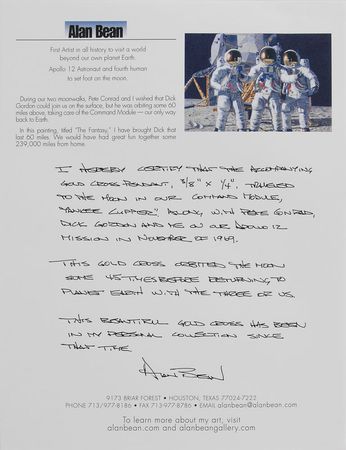 Alan Bean
First Artist in all history to visit a world
beyond our own planet Earth.
Apollo 12 Astronaut and fourth human
to set foot on the moon.
During our two moonwalks, Pete Conrad and I wished that Dick
Gordon could join us on the surface, but he was orbiting some 60
miles above, taking care of the Command Module — our only way
back to Earth.
In this painting, titled "The Fantasy," I have brought Dick that
last 60 miles. We would have had great fun together some
239,000 miles from home.
I HEREBY CERTIFY THAT THE ACCOMPANYING
GOLD CROSS PENDANT, 3/8" x 1/4", TRAVELED
TO THE MOON IN OUR COMMAND MODULE,
"YANKEE CLIPPER", ALONG WITH PETE CONRAD,
DICK GORDON AND ME ON OUR APOLLO 12
MISSION IN NOVEMBER OF 1969.
THIS GOLD CROSS ORBITED THE MOON
SOME 45 TIMES BEFORE RETURNING TO
PLANET EARTH WITH THE THREE OF US.
THIS BEAUTIFUL GOLD CROSS HAS BEEN
IN MY PERSONAL COLLECTION SINCE
THAT TIME
ALAN BEAN
9173 BRIAR FOREST • HOUSTON, TEXAS 77024-7222
PHONE 713/977-8186 • FAX 713/977-8786 • EMAIL alanbean@alanbean.com
To learn more about my art, visit
alanbean.com and alanbeangallery.com